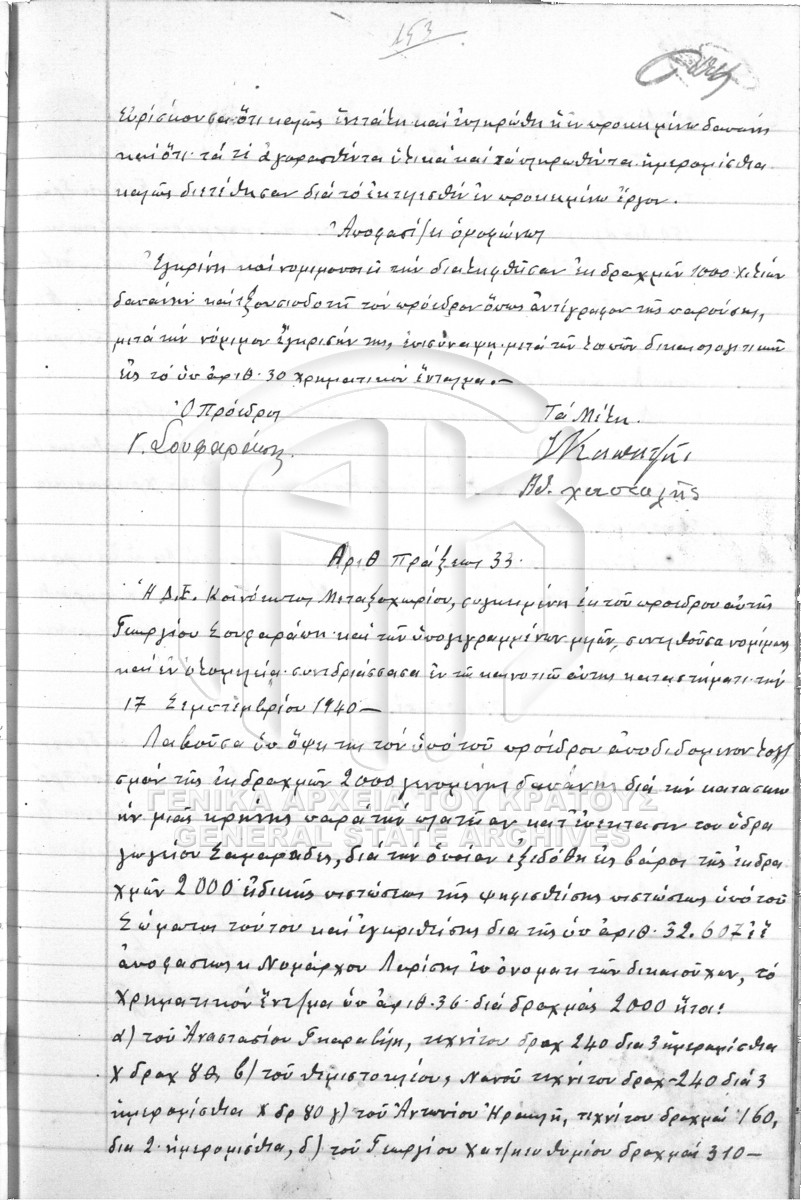 153
Εὑρίσκουσα ὅτι καλῶς ἐνετάλη καὶ ἐπληρώθη ἡ ἐν προκειμένῳ δαπάνη
καὶ ὅτι τά τε ἀγορασθέντα ὑλικὰ καὶ τὰ πληρωθέντα ἡμερομίσθια
καλῶς διετέθησαν διὰ τὸ ἐκτελεσθὲν ἐν προκειμένῳ ἔργον.
Ἀποφασίζει ὁμοφώνως
Ἐγκρίνει καὶ νομιμοποιεῖ τὴν διατεθεῖσαν ἐκ δραχμῶν 1000 χιλίων
δαπάνην καὶ ἐξουσιοδοτεῖ τὸν πρόεδρον ὅπως ἀντίγραφον τῆς παρούσης,
μετὰ τὴν νόμιμον ἔγκρισίν της, ἐπισυνάψῃ μετὰ τῶν λοιπῶν δικαιολογητικῶν
εἰς τὸ ὑπ' ἀριθ. 30 χρηματικὸν ἔνταλμα.—
Ὁ Πρόεδρος Τὰ Μέλη.
Γ. Σουφαράπης.
Ἀθ.
Ἀριθ πράξεως 33.
Ἡ Δ.Ε. Κοινότητος Μεταξοχωρίου, συγκειμένη ἐκ τοῦ προέδρου αὐτῆς
Γεωργίου Σουφαράπη καὶ τῶν ὑπογεγραμμένων μελῶν, συνελθοῦσα νομίμως
καὶ ἐν ὁλομελείᾳ συνεδριάσασα ἐν τῷ κοινοτικῷ αὐτῆς καταστήματι τὴν
17 Σεπτεμβρίου 1940—
Λαβοῦσα ὑπ' ὄψει της τὸν ὑπὸ τοῦ προέδρου ἀποδιδόμενον λογ/
σμὸν τῆς ἐκ δραχμῶν 2000 γενομένης δαπάνης διὰ τὴν κατασκευ
ὴν μιᾶς κρήνης παρὰ τὴν πλατεῖαν κατ' ἐπέκτασιν τοῦ ὑδρα
γωγείου Σαμαράδες, διὰ τὴν ὁποίαν ἐξεδόθη εἰς βάρος τῆς ἐκ δρα
χμῶν 2000 εἰδικῆς πιστώσεως τῆς ψηφισθείσης πιστώσεως ὑπὸ τοῦ
Σώματος τούτου καὶ ἐγκριθείσης διὰ τῆς ὑπ' ἀριθ. 32.607 ἐ.ἔ
ἀποφάσεως κ Νομάρχου Λαρίσης ἐπ' ὀνόματι τῶν δικαιούχων, τὸ
χρηματικὸν ἔντ/μα ὑπ' ἀριθ. 36 διὰ δραχμὰς 2000 ἤτοι:
α) τοῦ Ἀναστασίου Γκαραβέλη, τεχνίτου δραχ 240 διὰ 3 ἡμερομίσθια
Χ δραχ 80, β) τοῦ Θεμιστοκλέους Νανοῦ τεχνίτου δραχ-240 διὰ 3
ἡμερομίσθια Χ δρ 80 γ) τοῦ Ἀντωνίου Ἡρακλῆ, τεχνίτου δραχμὰς 160,
διὰ 2 ἡμερομίσθια, δ) τοῦ Γεωργίου Χατ/ευθυμίου δραχμὰς 310—
ΓΕΝΙΚΑ ΑΡΧΕΙΑ ΤΟΥ ΚΡΑΤΟΥΣ
GENERAL STATE ARCHIVES